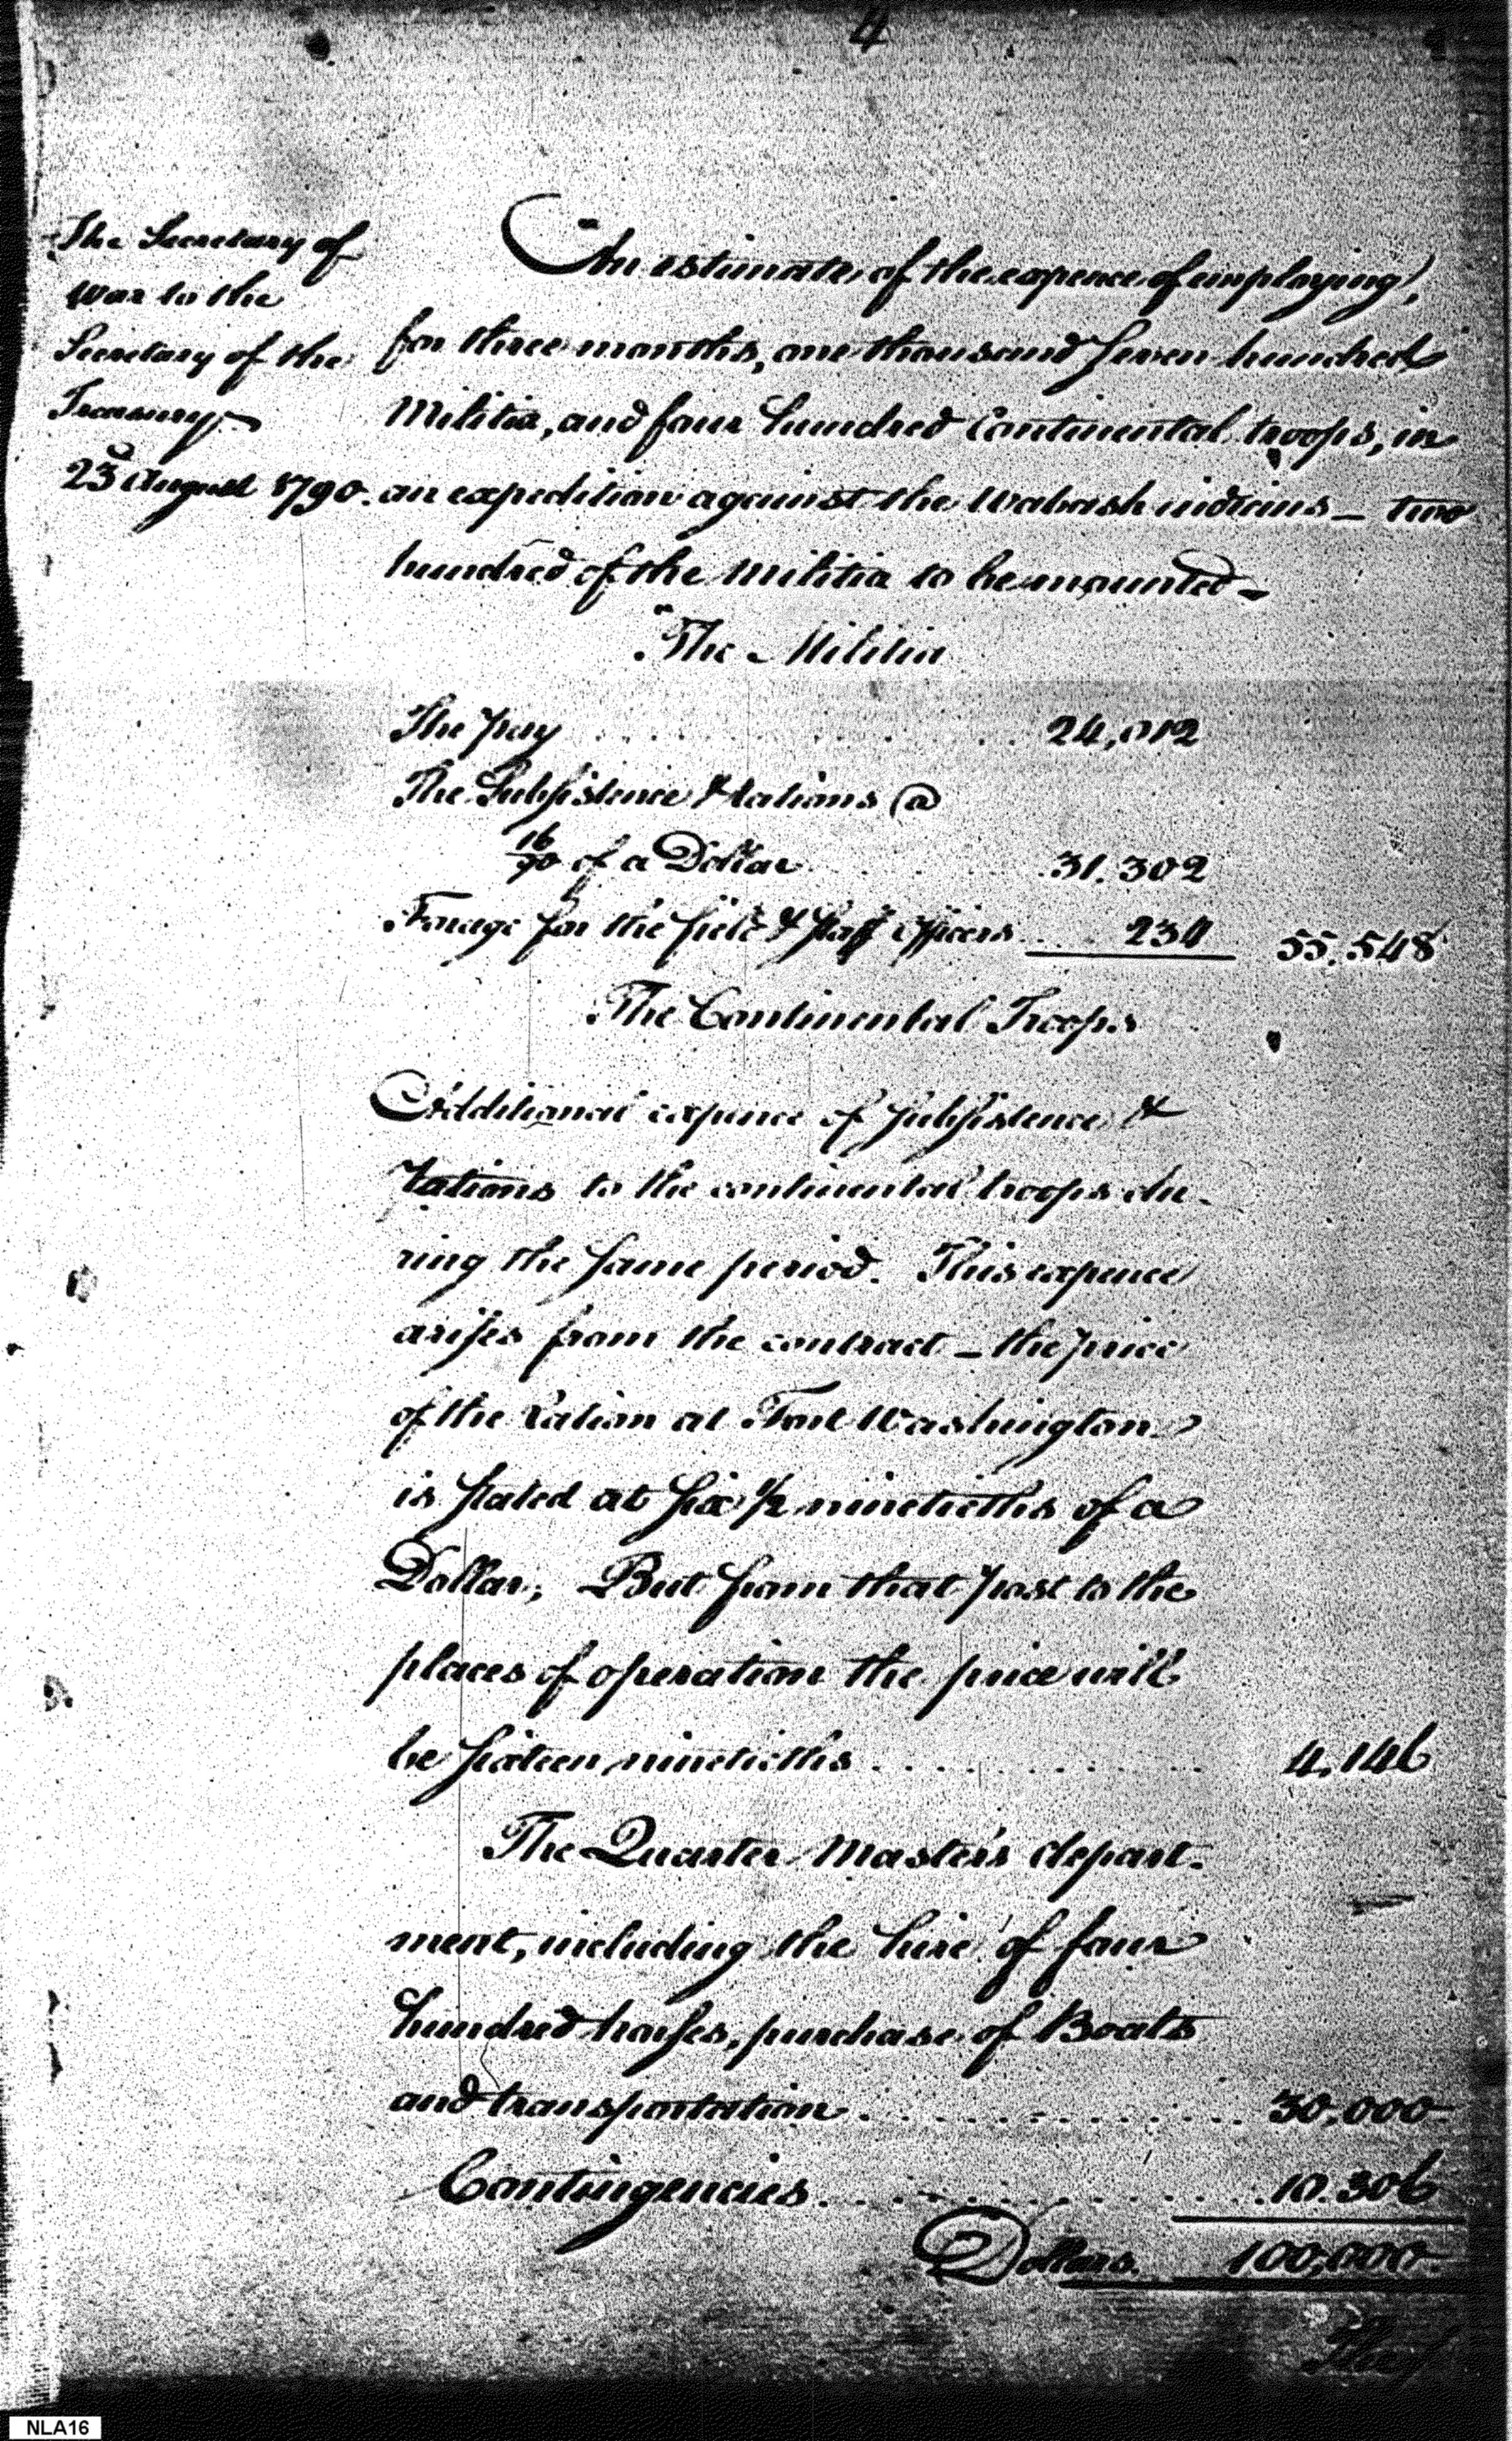 4
The Secretary of
War to the
Secretary of the
Treasury
23d August 1790.
An estimate of the expence of employing,
for three months, one thousand seven hundred
Militia, and four hundred Continental troops, in
an expedition against the Wabash indians — two
hundred of the Militia to be mounted —
The Militia
The pay . . . . . . . . 24,012
The Subsistence & rations @
16/90 of a Dollar . . . . 31.302
Forage for the field & staff officers . . . 234 55.548
The Continental Troops
Additional expence of subsistence &
rations to the continental troops du-
ring the same period. This expence
arises from the contract — the price
of the ration at Fort Washington
is stated at six 1/2 ninetieths of a
Dollar; But from that post to the
places of operation the price will
be sixteen ninetieths . . . . . . . . 4.146
The Quarter Master's depart-
ment, including the hire of four
hundred horses, purchase of Boats
and transportation . . . . . . . . 30.000
Contingencies . . . . . . . . 10.306
Dollars. 100,000
NLA16